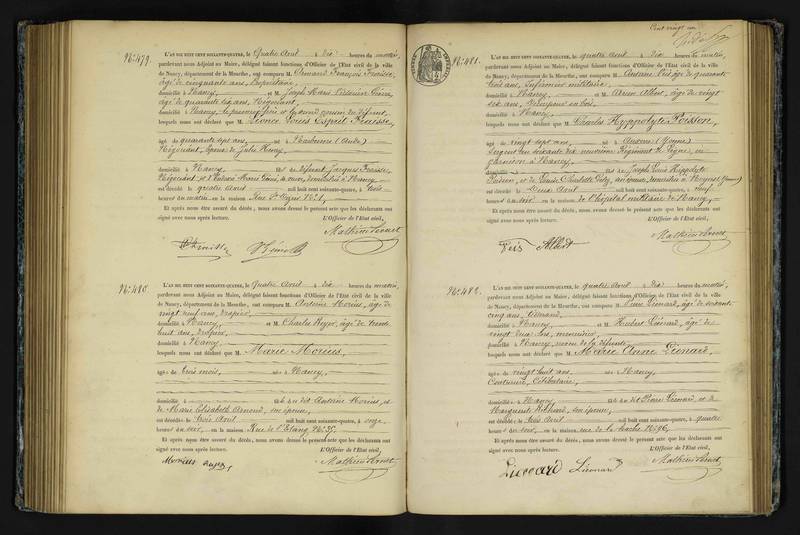 N°. 479.
L'AN DIX HUIT CENT SOIXANTE-QUATRE, le Quatre Avril à Dix heures du matin,
pardevant nous Adjoint au Maire, délégué faisant fonctions d'Officier de l'Etat civil de la ville
de Nancy, département de la Meurthe, ont comparu M. Armand François Fraisse,
âgé de cinquante ans, Propriétaire,
domicilié à Nancy, et M. Joseph Marie
âgé de quarante six ans, Négociant,
domicilié à Nancy, le premier frère et le second cousin du défunt,
lesquels nous ont déclaré que M. Léonce Louis Esprit Fraisse,
âgé de quarante sept ans, né à Narbonne (Aude)
Négociant, époux de Julie
domicilié à Nancy fils de défunt Jacques Fraisse,
Négociant, et
est décédé le quatre Avril mil huit cent soixante-quatre, à trois
heures du matin en la maison Rue St. N°. 1,
Et après nous être assuré du décès, nous avons dressé le présent acte que les déclarants ont
signé avec nous après lecture. L'Officier de l'Etat civil,
N°. 480.
L'AN DIX HUIT CENT SOIXANTE-QUATRE, le Quatre Avril à Dix heures du matin,
pardevant nous Adjoint au Maire, délégué faisant fonctions d'Officier de l'Etat civil de la ville
de Nancy, département de la Meurthe, ont comparu M. Antoine Moriens, âgé de
vingt neuf ans, drapier,
domicilié à Nancy, et M. Charles Reyer, âgé de trente
huit ans, drapier,
domicilié à Nancy,
lesquels nous ont déclaré que M. Marie Moriens,
âgée de trois mois, née à Nancy,
domicilié à fille du dit Antoine Moriens, et
de Marie Elisabeth Arnoud, son épouse,
est décédée le trois Avril mil huit cent soixante-quatre, à onze
heures du soir, en la maison Rue de l'Etang N°. 35,
Et après nous être assuré du décès, nous avons dressé le présent acte que les déclarants ont
signé avec nous après lecture. L'Officier de l'Etat civil,
Cent vingt un
N°. 481.
L'AN DIX HUIT CENT SOIXANTE-QUATRE, le quatre Avril à Dix heures du matin,
pardevant nous Adjoint au Maire, délégué faisant fonctions d'Officier de l'Etat civil de la ville
de Nancy, département de la Meurthe, ont comparu M. Antoine Veis, âgé de quarante
trois ans, Infirmier militaire,
domicilié à Nancy, et M. Albert, âgé de vingt
six ans,
domicilié à Nancy,
lesquels nous ont déclaré que M. Charles Hyppolyte Poisson,
âgé de vingt sept ans, né à (Yonne)
Sergent au soixante dix neuvième Régiment de ligne, en
garnison à Nancy,
fils de Joseph Louis Hippolyte
Poisson, et de Louise Elisabeth
est décédé le Deux Avril mil huit cent soixante-quatre, à neuf
heures du soir, en la maison de l'hôpital militaire de Nancy,
Et après nous être assuré du décès, nous avons dressé le présent acte que les déclarants ont
signé avec nous après lecture. L'Officier de l'Etat civil,
Veis Albert
N°. 482.
L'AN DIX HUIT CENT SOIXANTE-QUATRE, le quatre Avril à Dix heures du matin,
pardevant nous Adjoint au Maire, délégué faisant fonctions d'Officier de l'Etat civil de la ville
de Nancy, département de la Meurthe, ont comparu M. Pierre Liénard, âgé de soixante
cinq ans,
domicilié à Nancy, et M. Hubert Liénard, âgé de
vingt deux ans, menuisier,
domicilié à Nancy,
lesquels nous ont déclaré que M. Marie Anne Liénard,
âgée de vingt huit ans, née à Nancy,
Couturière, Célibataire,
domiciliée à Nancy fille du dit Pierre Liénard, et de
Marguerite Richard, son épouse,
est décédée le trois Avril mil huit cent soixante-quatre, à quatre
heures du soir, en la maison rue de la hache N°. 96,
Et après nous être assuré du décès, nous avons dressé le présent acte que les déclarants ont
signé avec nous après lecture. L'Officier de l'Etat civil,
Liénard Liénard